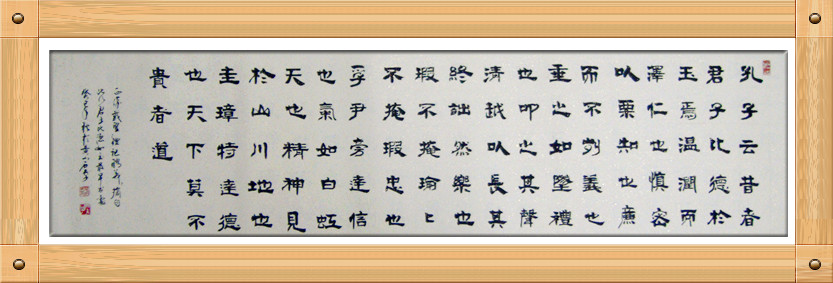 孔子云昔者
君子比德於
玉焉温潤而
澤仁也慎密
以栗知也廉
而不劌義也
垂之如墜禮
也叩之其聲
清越以長其
終詘然樂也
瑕不掩瑜〻
不掩瑕忠也
孚尹旁達信
也氣如白虹
天也精神見
於山川地也
圭璋特達德
也天下莫不
貴者道